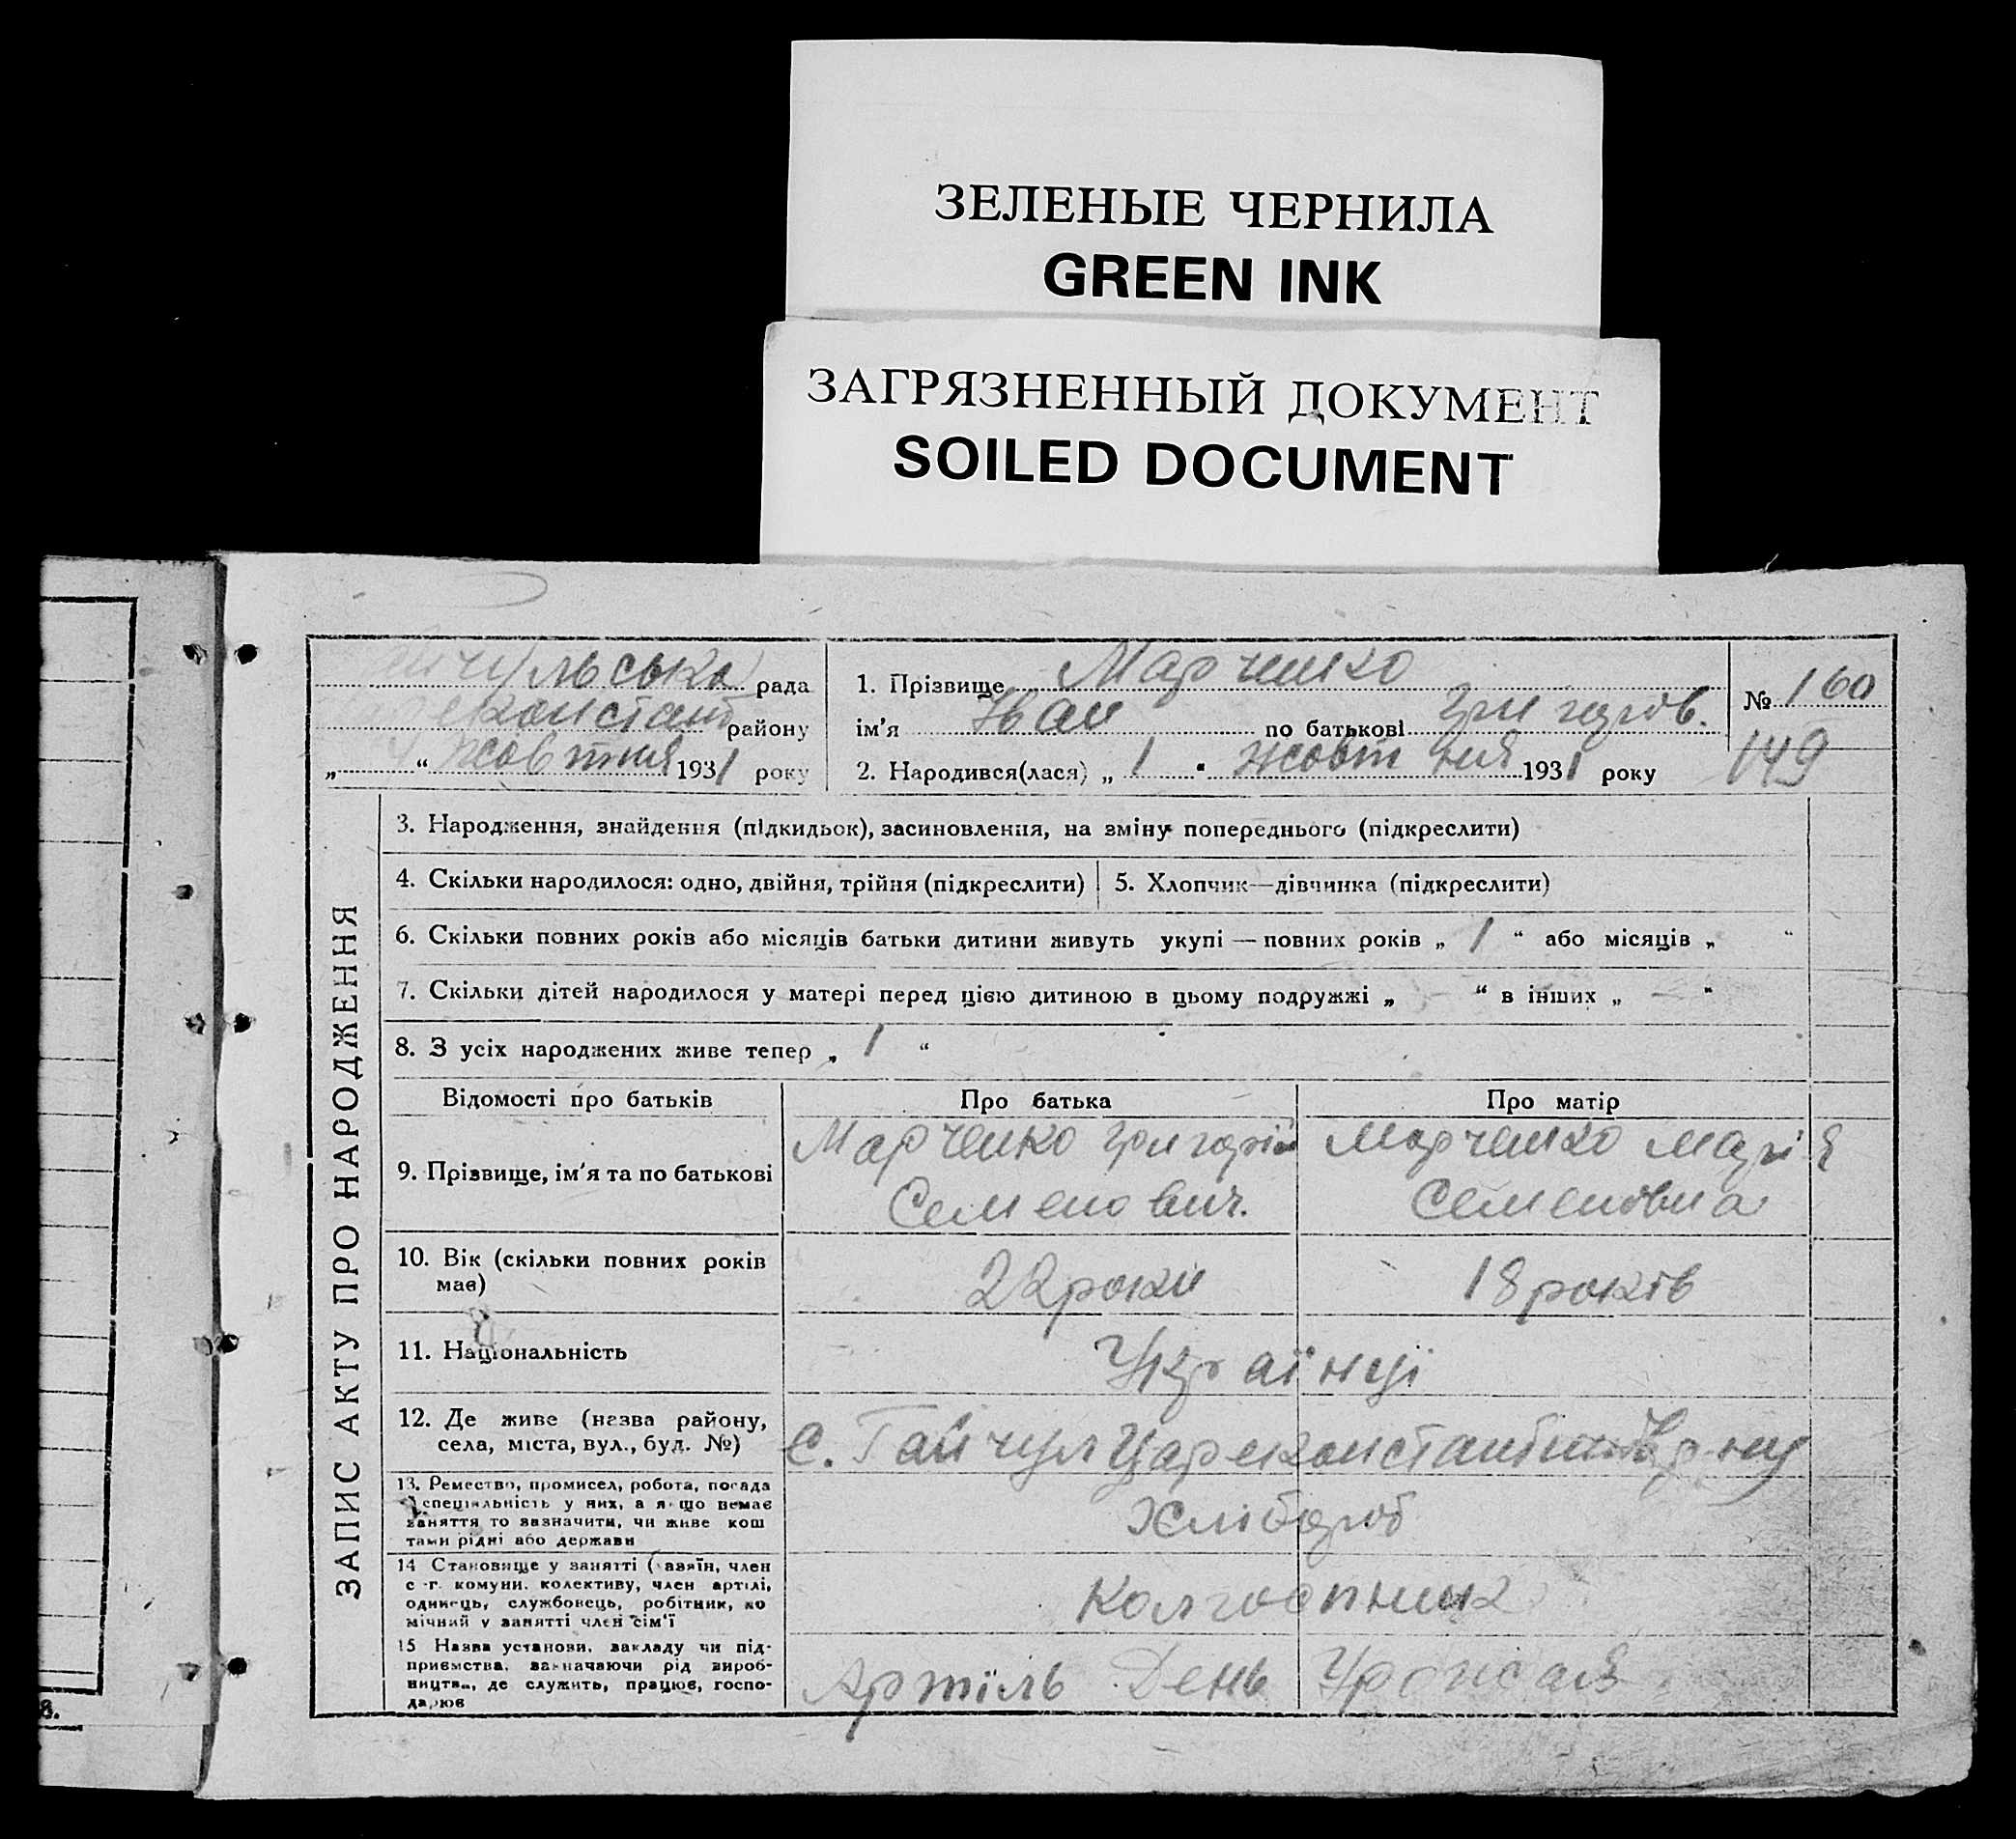 ЗЕЛЕНЫЕ ЧЕРНИЛА
GREEN INK
ЗАГРЯЗНЕННЫЙ ДОКУМЕНТ
SOILED DOCUMENT
чульська рада
еконстант району
„ “ жовтня 1931 року
1. Прізвище Марченко
ім'я Іван по батькові Григоров.
2. Народився(лася) „ 1 “ жовтня 1931 року
№ 160
149
ЗАПИС АКТУ ПРО НАРОДЖЕННЯ
3. Народження, знайдення (підкидьок), засиновлення, на зміну попереднього (підкреслити)
4. Скільки народилося: одно, двійня, трійня (підкреслити)
5. Хлопчик—дівчинка (підкреслити)
6. Скільки повних років або місяців батьки дитини живуть укупі — повних років „ 1 “ або місяців „ “
7. Скільки дітей народилося у матері перед цією дитиною в цьому подружжі „ — “ в інших „ — “
8. З усіх народжених живе тепер „ 1 “
Відомості про батьків
Про батька
Про матір
9. Прізвище, ім'я та по батькові
Марченко Григорій
Семенович.
Марченко Марія
Семеновна
10. Вік (скільки повних років
має)
22 роки
18 років
11. Національність
Українці
12. Де живе (назва району,
села, міста, вул., буд. №)
с. Гайчул Царекконстантин р-ну
13. Ремество, промисел, робота, посада
спеціяльність у них, а якщо немає
заняття то зазначити, чи живе кош
тами рідні або держави
Хлібороб
14 Становище у занятті (хазяїн, член
с.-г. комуни. колективу, член артілі,
одинець, службовець, робітник, по
мічний у занятті член сім'ї
Колгоспник
15 Назва установи, закладу чи під-
приємства, зазначаючи рід вироб-
ництва, де служить, працює, госпо-
дарює
Артіль День Урожая
8.